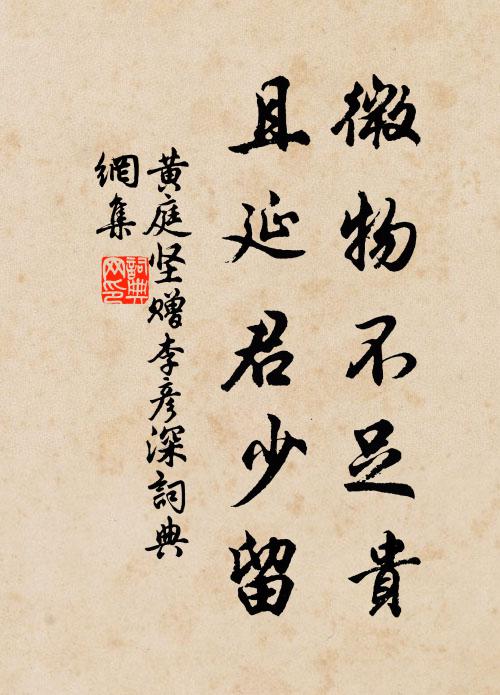 微物不足貴
且延君少留
黄庭坚赠李彦深詞典
網集
詞典
网印